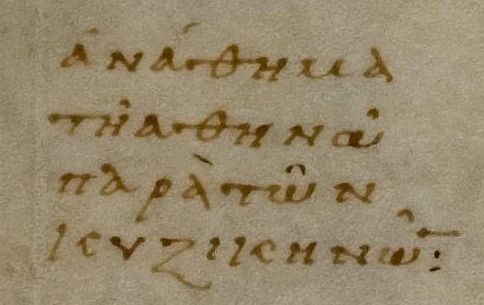 ἀνάθημα
τῆ ἀθηνᾶ
παρὰ τῶν
κυζικηνῶ̄: